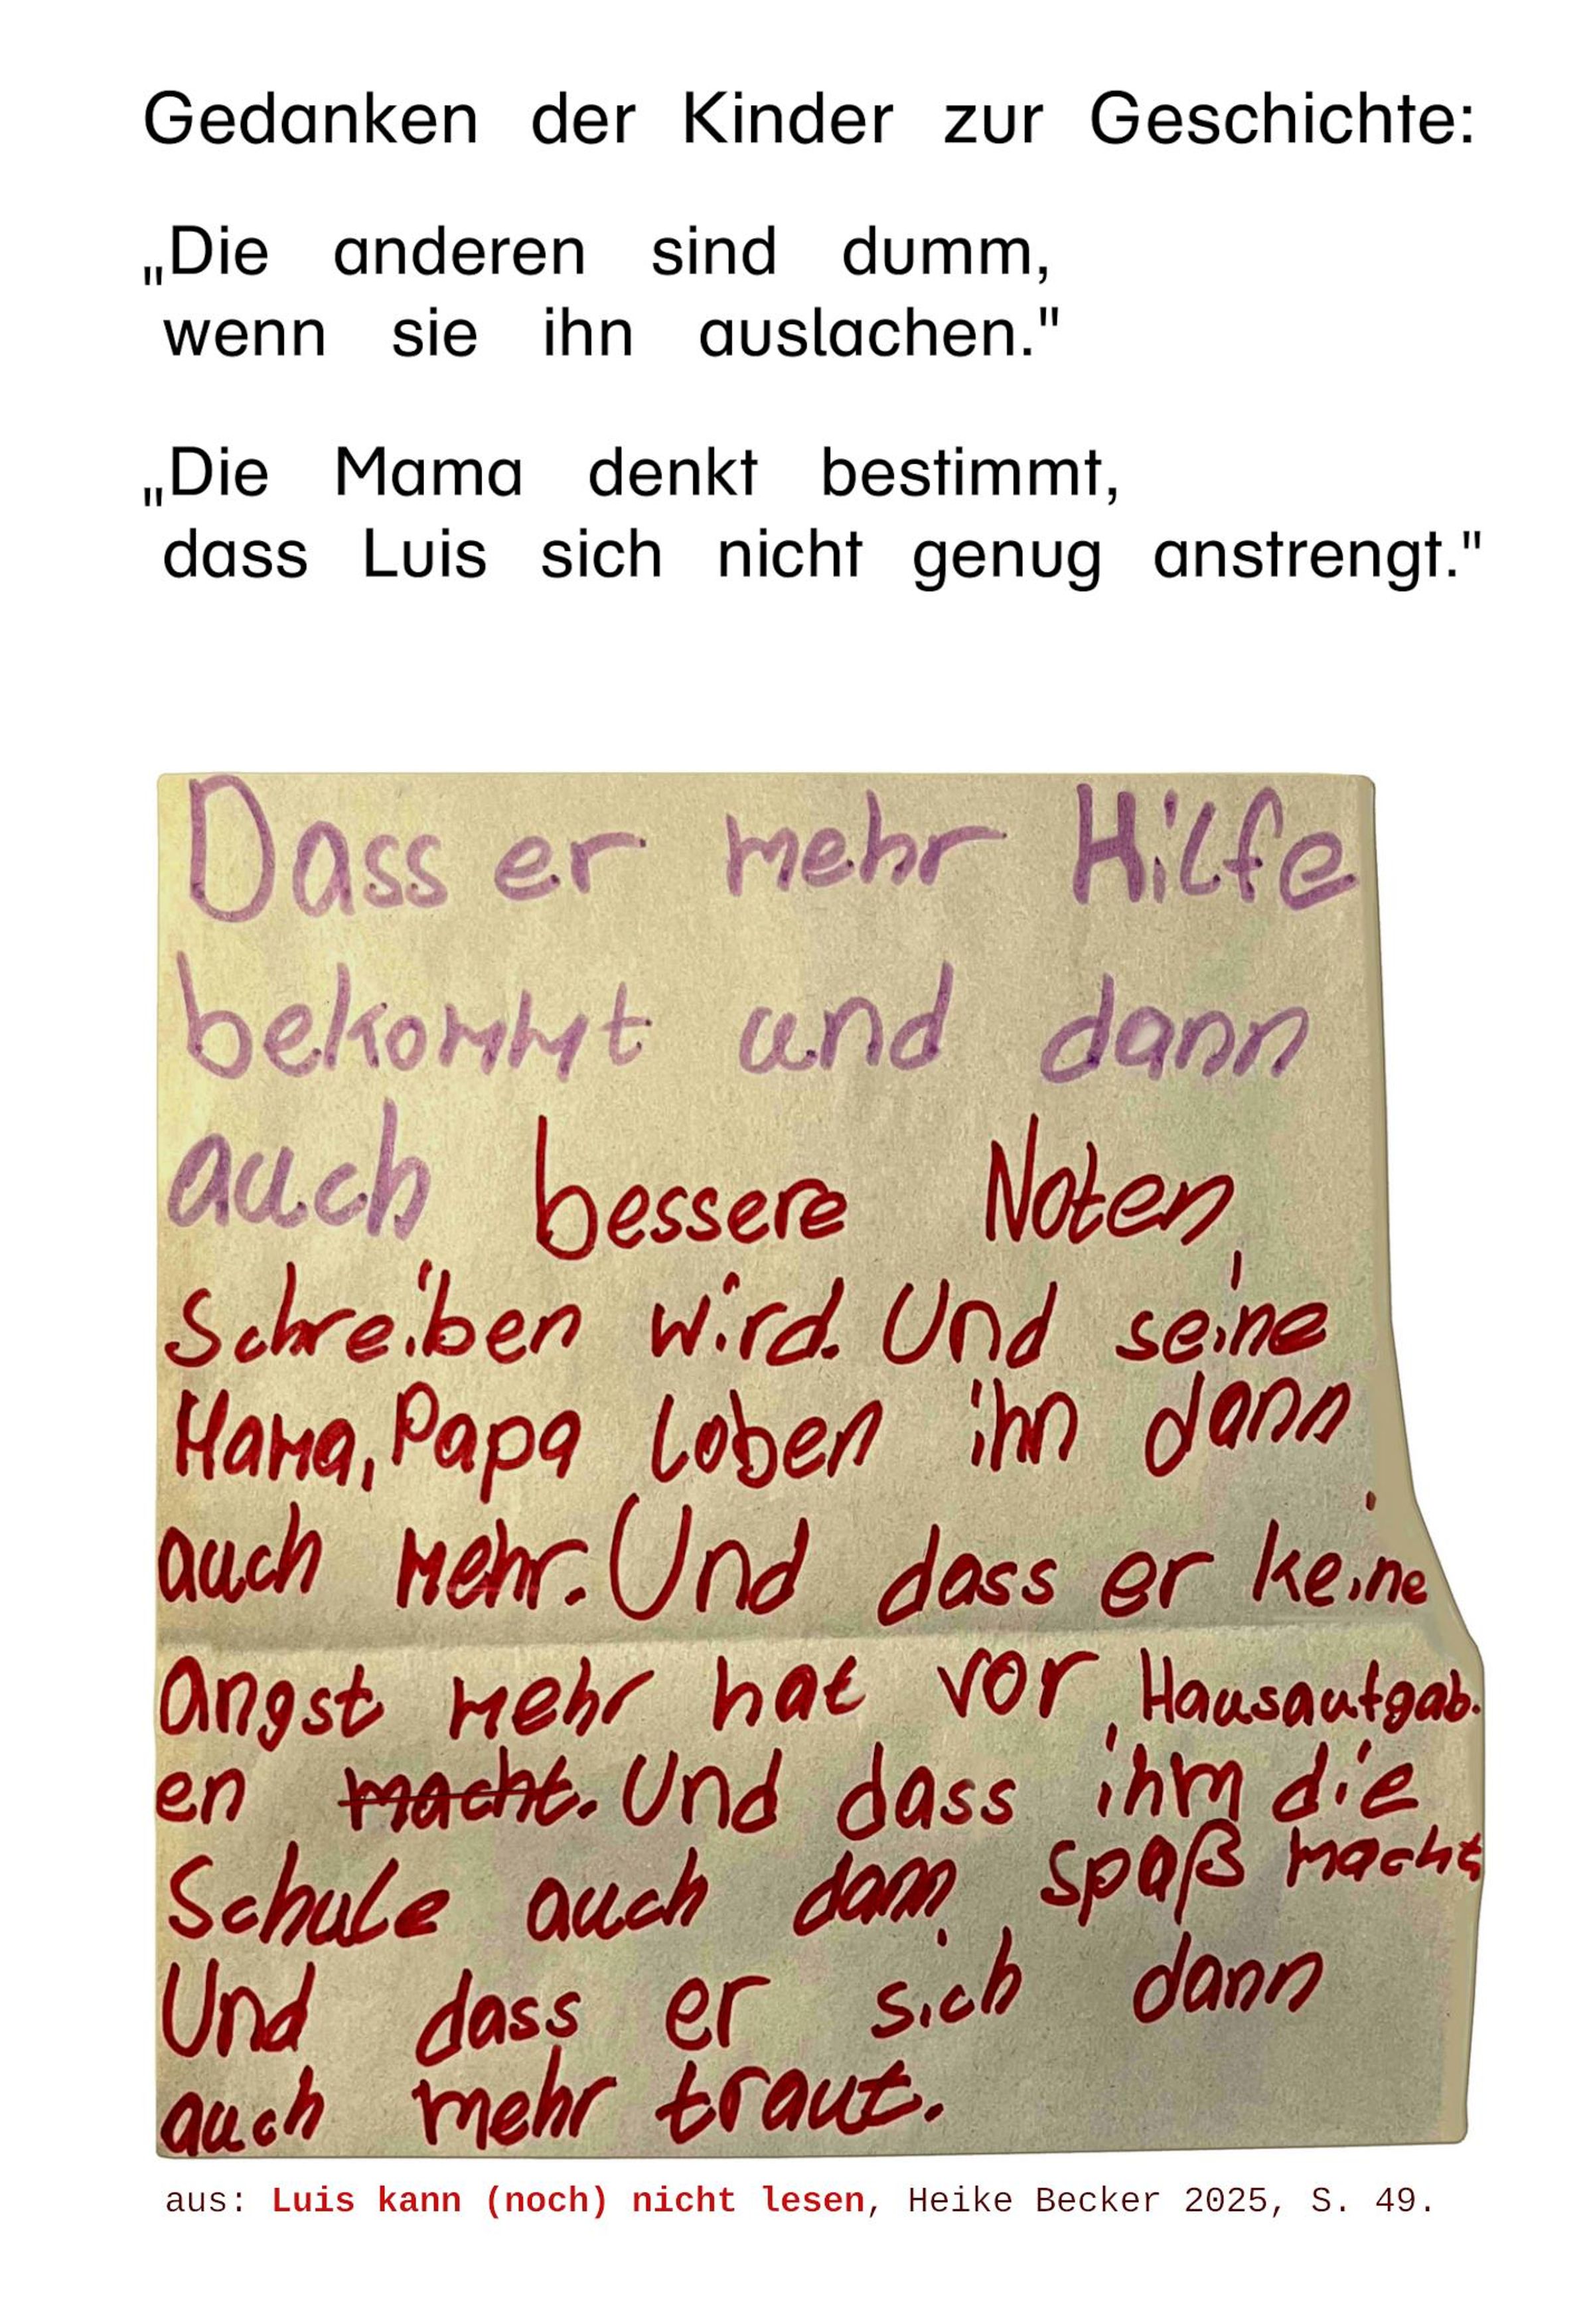 Gedanken der Kinder zur Geschichte:
„Die anderen sind dumm,
wenn sie ihn auslachen."
„Die Mama denkt bestimmt,
dass Luis sich nicht genug anstrengt."
Dass er mehr Hilfe
bekommt und dann
auch bessere Noten
schreiben wird. Und seine
Mama, Papa loben ihn dann
auch mehr. Und dass er keine
angst mehr hat vor Hausaufgab.
en macht. Und dass ihm die
Schule auch dann spaß macht
Und dass er sich dann
auch mehr traut.
aus: Luis kann (noch) nicht lesen, Heike Becker 2025, S. 49.